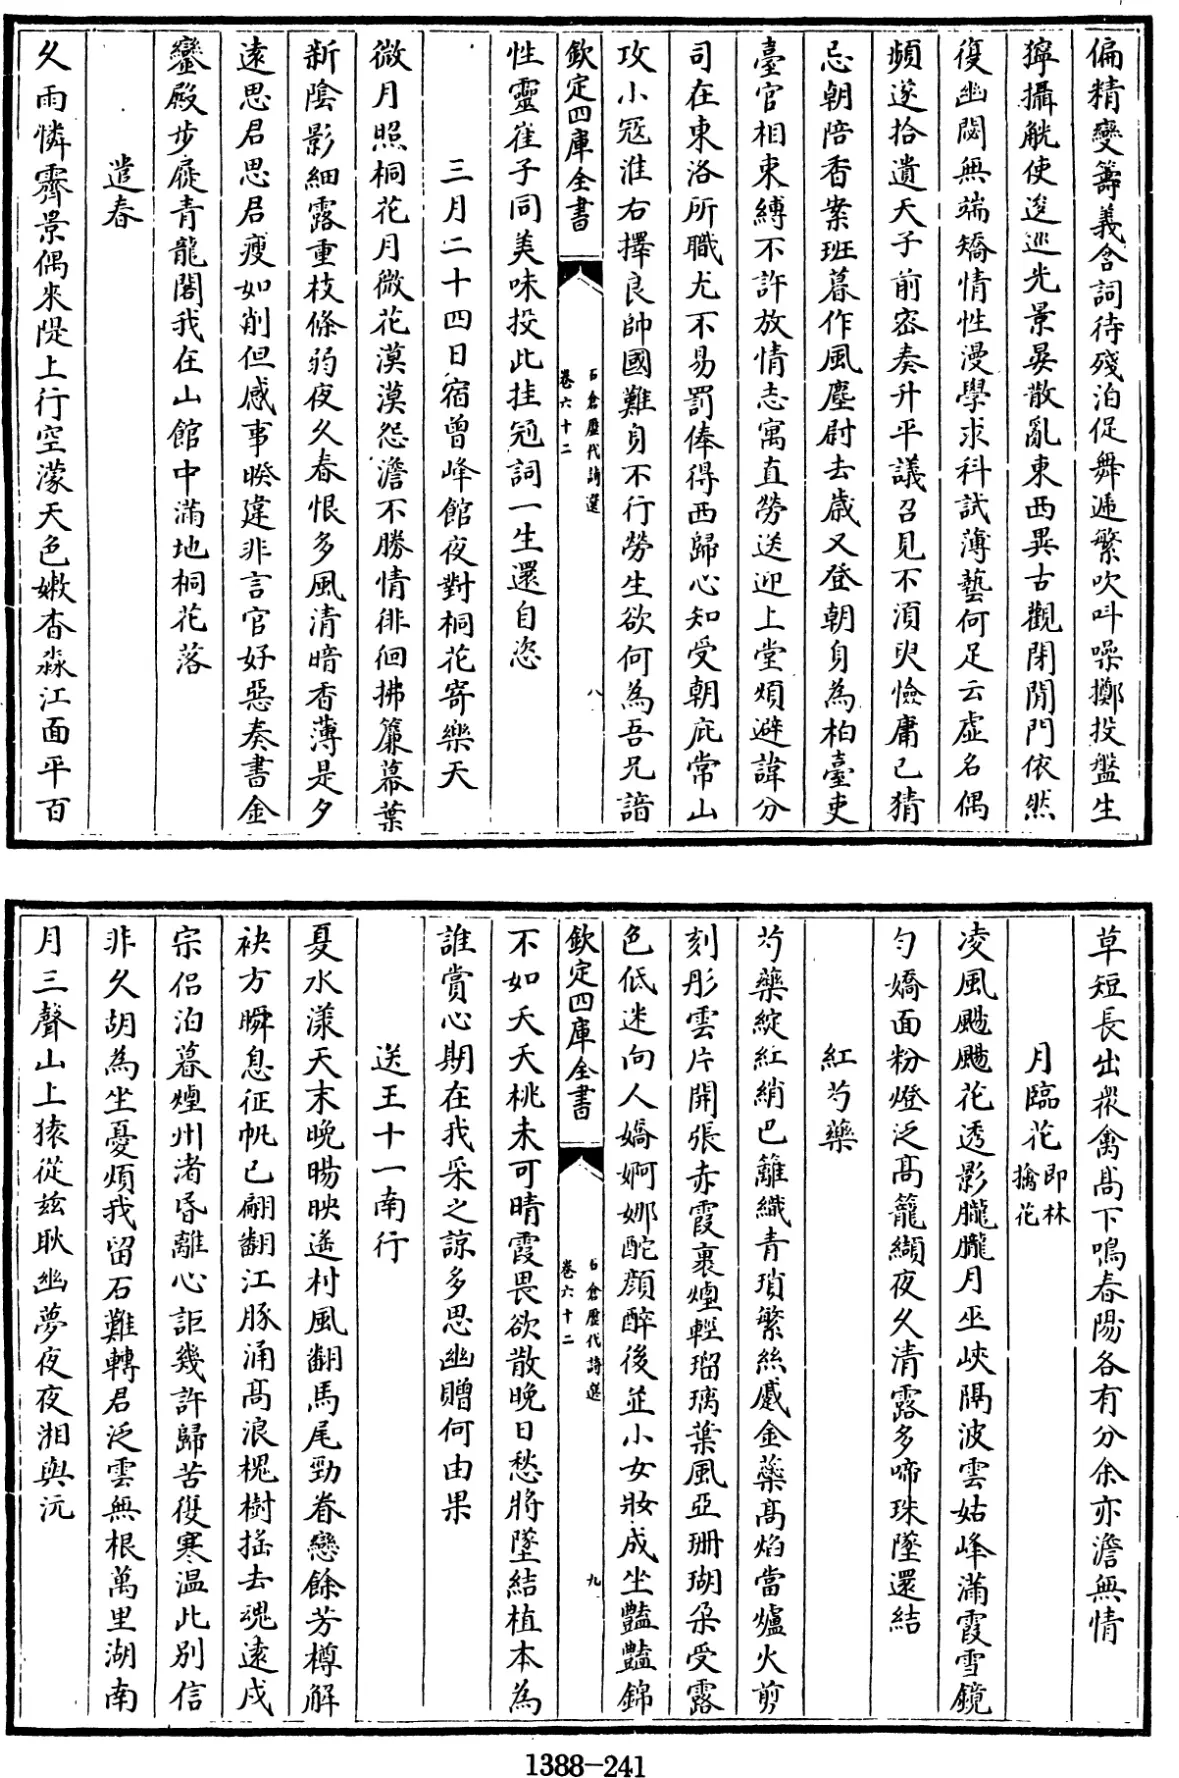 偏精變籌義含詞待殘泊促舞遞繁吹叫噪擲投盤生
獰攝觥使逡巡光景晏散亂東西異古觀閉閒門依然
復幽閟無端矯情性漫學求科試薄藝何足云虛名偶
頻遂拾遺天子前密奏升平議召見不須臾憸庸已猜
忌朝陪香案班暮作風塵尉去歳又登朝身為柏臺吏
臺官相束縛不許放情志寓直勞送迎上堂煩避諱分
司在東洛所職尤不易罰俸得西歸心知受朝庇常山
攻小冦淮右擇良帥國難身不行勞生欲何為吾兄諳
欽定四庫全書
石倉歷代詩選
卷六十二
八
性靈崔子同美味投此挂冠詞一生還自恣
三月二十四日宿曾峰館夜對桐花寄樂天
微月照桐花月微花漠漠怨澹不勝情徘徊拂簾幕葉
新陰影細露重枝條弱夜久春恨多風清暗香薄是夕
逺思君思君瘦如削但感事暌違非言官好惡奏書金
鑾殿步屣青龍閣我在山館中滿地桐花落
遣春
久雨憐霽景偶來隄上行空濛天色嫩杳淼江面平百
草短長出衆禽髙下鳴春陽各有分余亦澹無情
月臨花即林擒花
凌風颺颺花透影朧朧月巫峽隔波雲姑峰滿霞雪鏡
勻嬌面粉燈泛髙籠纈夜久清露多啼珠墜還結
紅芍藥
芍藥綻紅綃巴籬織青瑣繁絲蹙金蘂髙焰當爐火剪
刻彤雲片開張赤霞裹煙輕瑠璃葉風亞珊瑚朶受露
色低迷向人嬌婀娜酡顏醉後並小女妝成坐豔豔錦
欽定四庫全書
石倉歷代詩選
卷六十二
九
不如夭夭桃未可晴霞畏欲散晚日愁將墜結植本為
誰賞心期在我采之諒多思幽贈何由果
送王十一南行
夏水漾天末晚暘映遙村風翻馬尾勁眷戀餘芳樽解
袂方瞬息征帆已翩翻江豚涌髙浪槐樹搖去魂逺戍
宗侶泊暮煙州渚昏離心詎幾許歸苦復寒溫此別信
非久胡為坐憂煩我留石難轉君泛雲無根萬里湖南
月三聲山上猿從兹耿幽夢夜夜湘與沅
1388-241